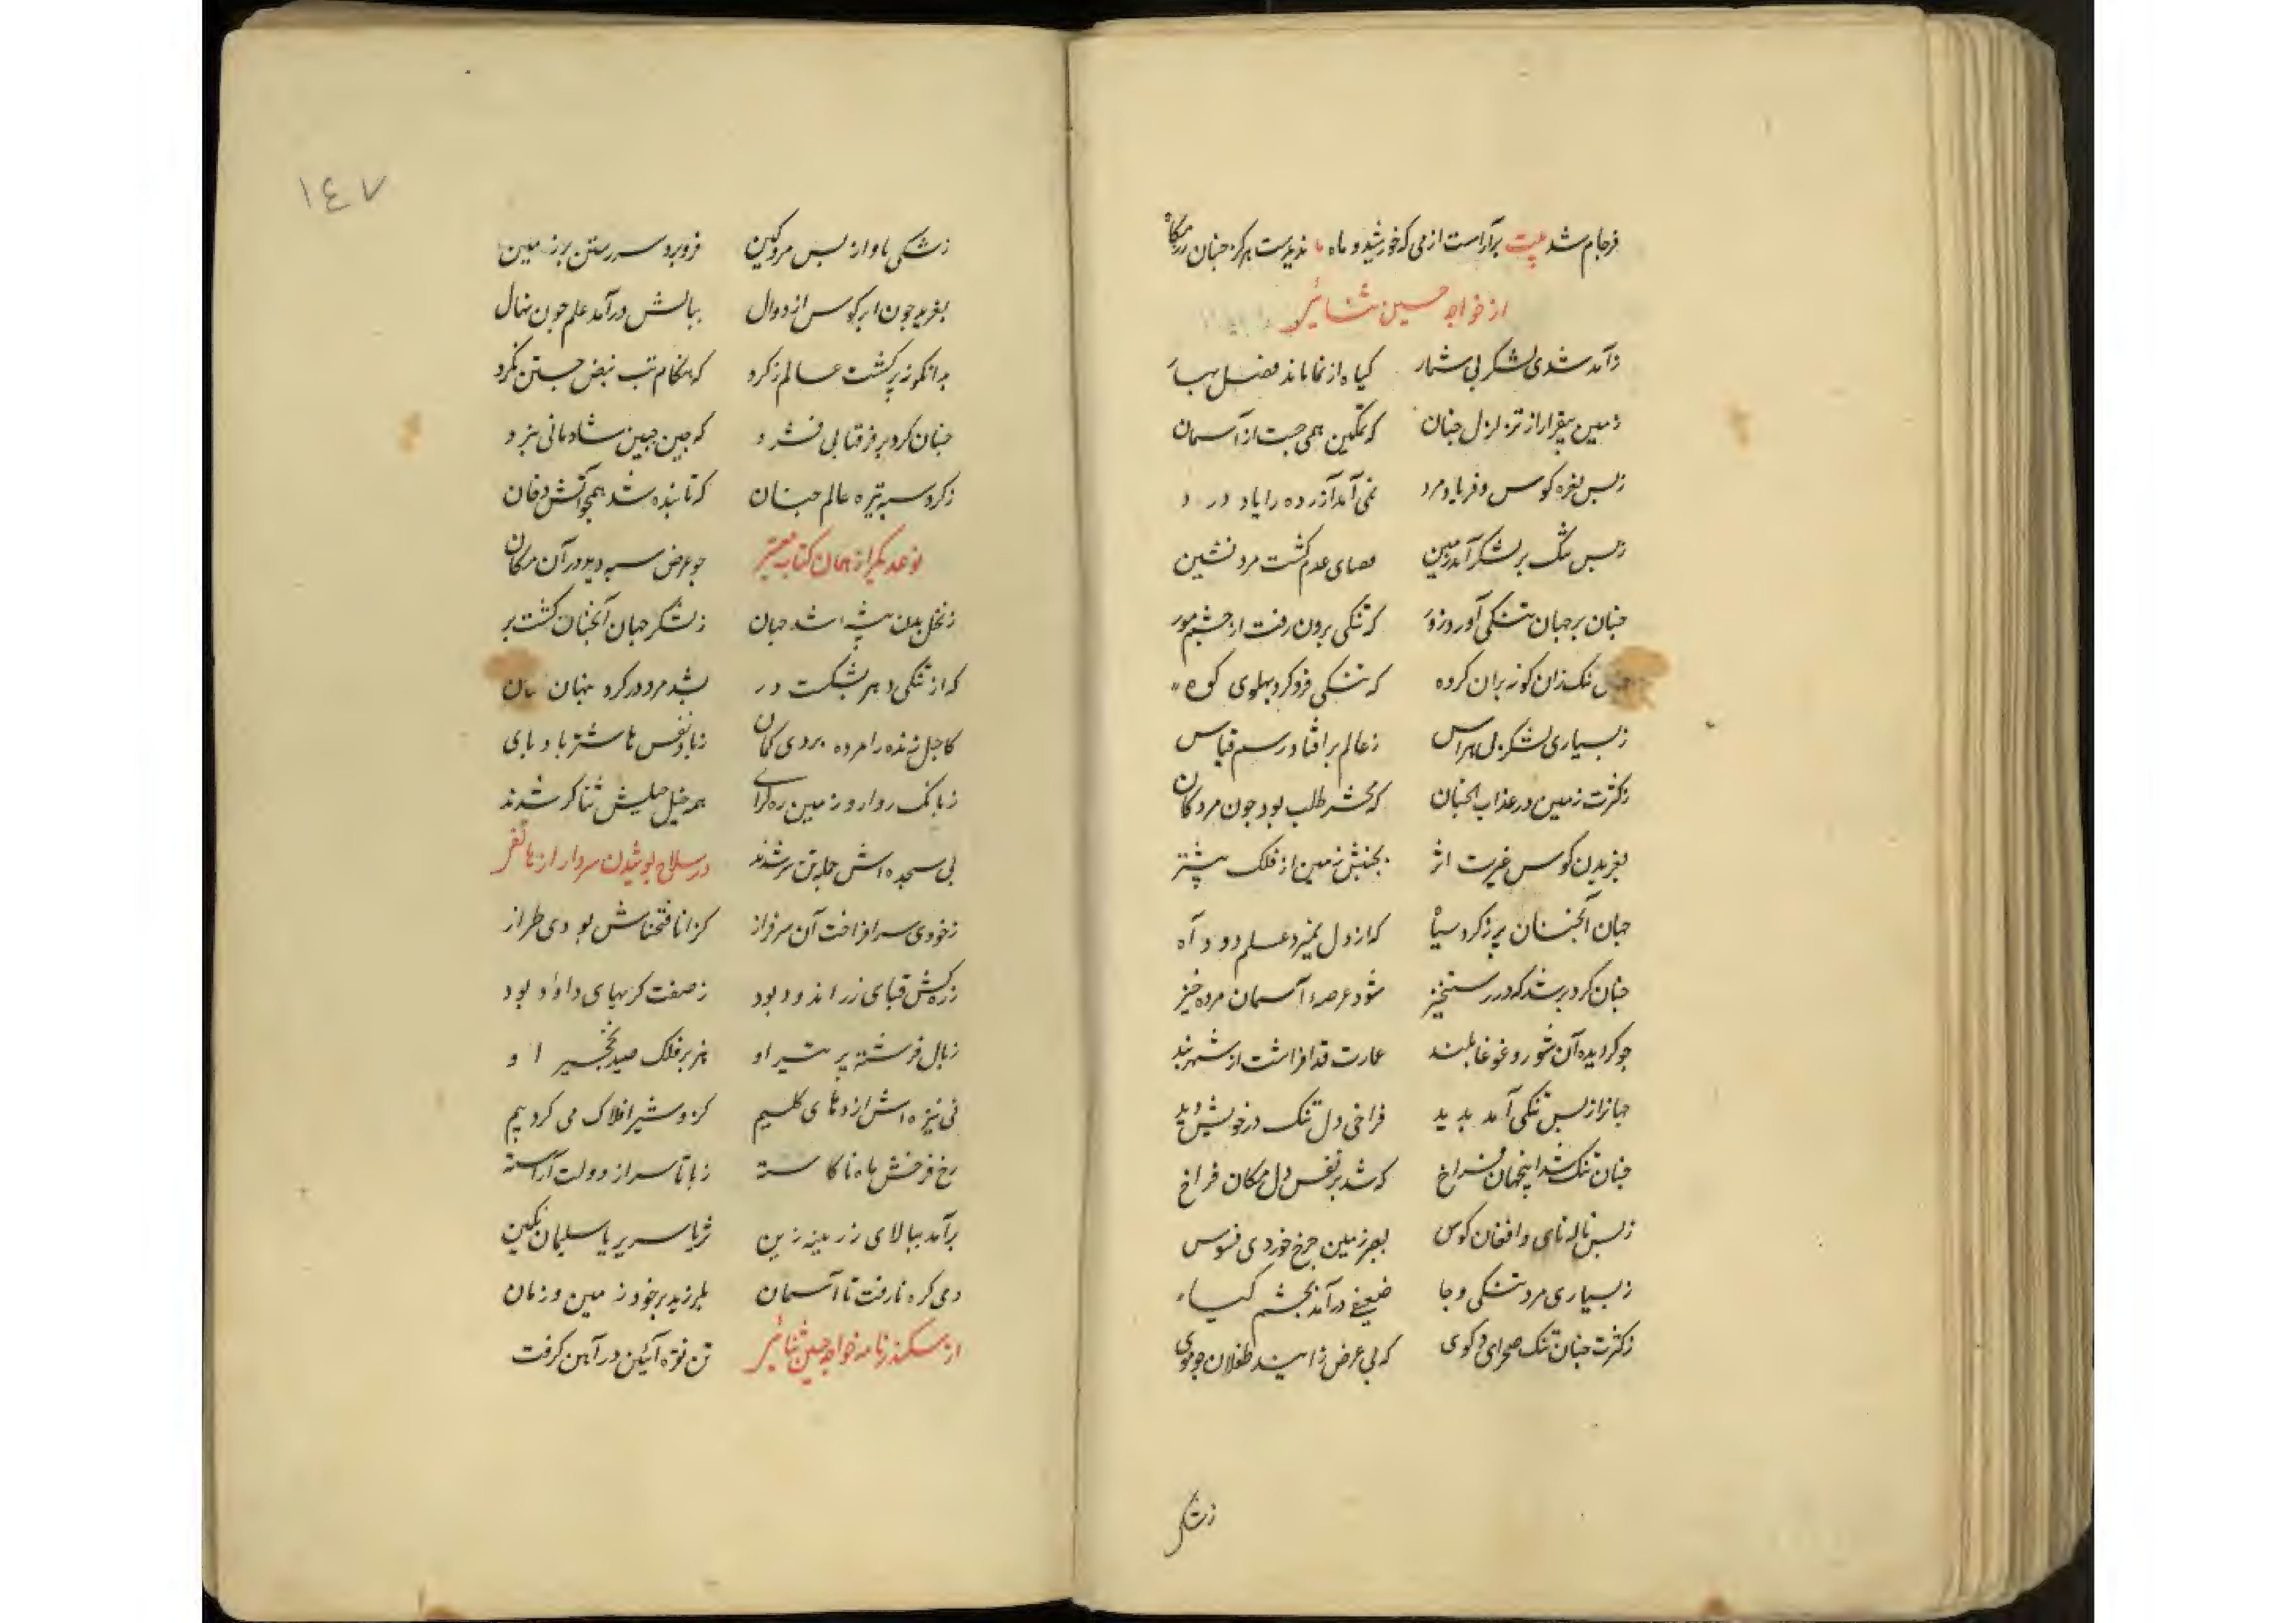 فرجام شد بیت برآراست ازمی که خورشید و ماه ندیدست هرگز چنان رزمگاه
از خواجه حسین ثنائی
درآمد شدی لشکر بی شمار گیاه از نما ماند فصل بهار
زمین بیقرار از تزلزل چنان که تمکین همی جست از آسمان
زبس نعره کوس و فریاد مرد نمی آمد آزرده را یاد درد
زبس تنگ بر لشکر آمد زمین فضای عدم گشت مردنشین
چنان بر جهان تنگی آورد زور که تنگی برون رفت از چشم مور
تنک زان گونه بران کروه که تنگی فرو کرد پهلوی کوه
زبسیاری لشکر بی هراس زعالم برافتاد رسم قیاس
زکثرت زمین در عذاب آنچنان که محشر طلب بود چون مردکان
بغریدن کوس غیرت اثر بجنبش زمین از فلک پیشتر
جهان آنچنان پر زکرد سیاه که از دل نمیزد علم دود آه
چنان کرد بر شد که در رستخیز شود عرصه آسمان مرده خیز
چو کردیده آن شور و غوغا بلند عمارت قد افراشت از شهربند
جهانرا زبس تنگی آمد پدید فراخی دل تنک در خویش دید
چنان تنک شد اینجهان فراخ که شد بر نفس دل مکان فراخ
زبس ناله نای و افغان کوس بعجز زمین چرخ خوردی فسوس
زبسیاری مرد تنگی و جا ضعیفی درآمد بچشم گیاه
زکثرت چنان تنک صحرای و کوی که بی عرض زایند طفلان چو موی
زتنگی
١٤٧
زتنگی ماوا زبس مرد کین فرو برد سر رستن بر زمین
بغرید چون ابر کوس از دوال ببالش درآمد علم چون نهال
بدانگونه پر گشت عالم زکرد که هنکام تب نبض جستن نکرد
چنان کرد بر فرق تابی فشرد که چین جبین شادمانی ببرد
زکرد سپه تیره عالم چنان که تابنده شد همچو آتش دخان
نوعدیکر از همان کتاب معتبر چو عرض سپه دید در آن مکان
زنخل بدن بیشه شد جهان زلشکر جهان آنچنان گشت پر
که از تنگی دهر بشکست در بشد مرد در کرد پنهان
کاجل زنده را مرده بردی کمان زباد نفس تا شتر باد پای
زبانک روارو زمین ره کرای همه خیل خیلش ثناکر شدند
پی سجده اش جمله تن سر شدند در سلاح پوشیدن سردار از هاتفی
زخودی سر افراخت آن سرفراز کز انا فتحناش بودی طراز
زره کش قبای زر اندود بود زصنعت کریهای داود بود
زبال فرشته پر تیر او هزبر فلک صید نخجیر او
نی نیزه اش اژدهای کلیم کزو شیر افلاک می کرد بیم
رخ فرخش ماه ناکاسته زپا تا سر از دولت آراسته
برآمد ببالای زرینه زین ثریا سریر یا سلیمان نکین
دمی کره نا رفت تا آسمان بلرزید بر خود زمین و زمان
از سکندرنامه خواجه حسین ثنائی تن نقره آئین در آهن کرفت